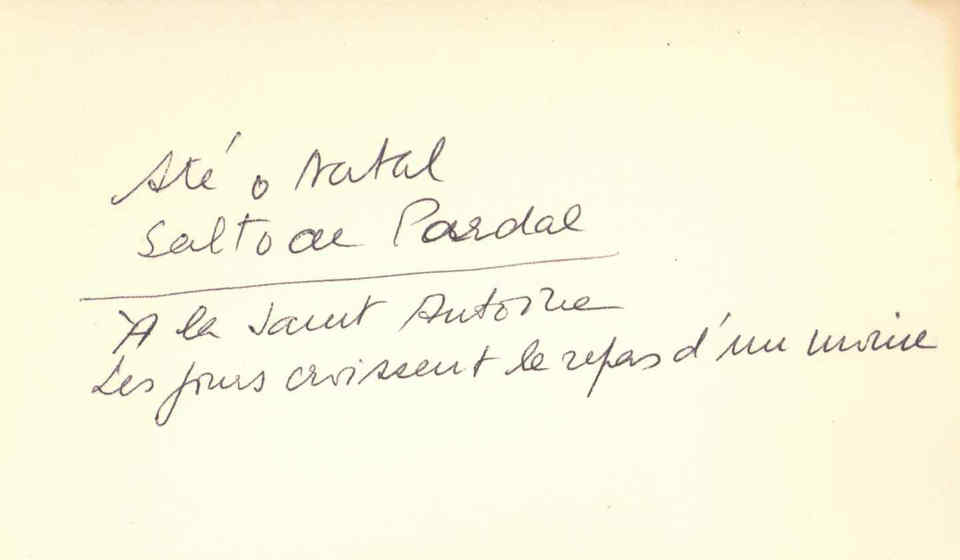 Até o Natal
Salto de Pardal
A la Saint Antoine
Les jours croissent le repas d'un moine